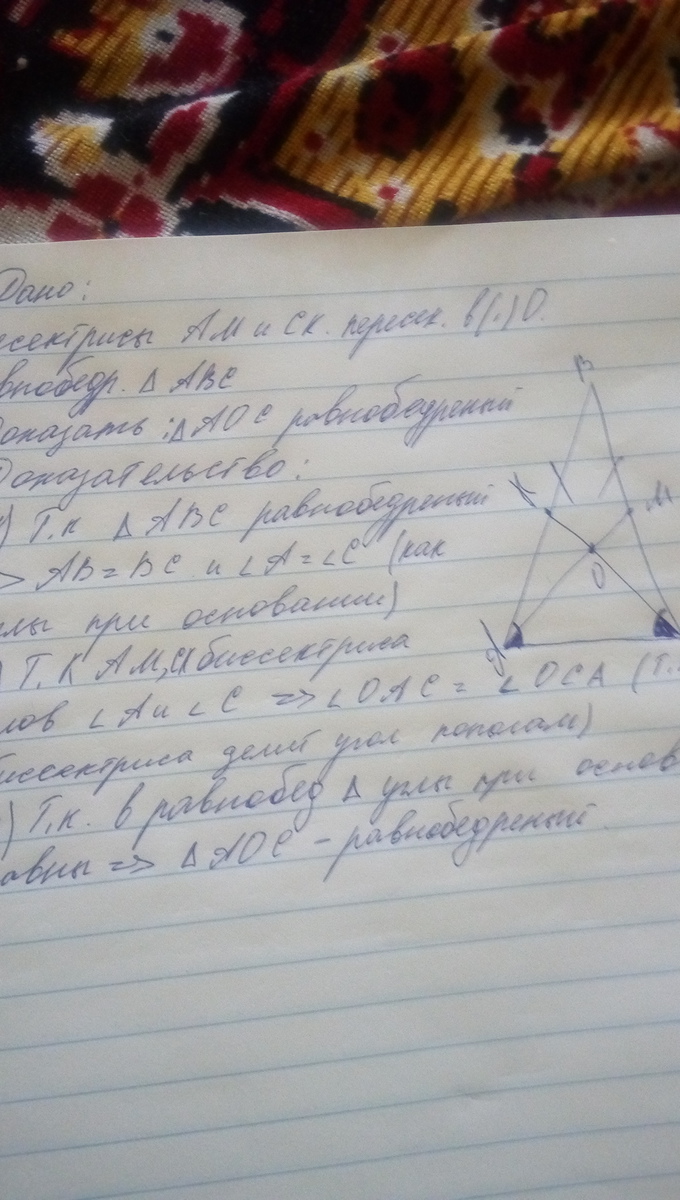 Дано:
ссектрисы АМ и СК. пересек. в(.) О.
внобедр. Δ АВС
оказать: Δ АОС равнобедреный
Доказательство:
) Т.к Δ АВС равнобедреный
=> АВ = ВС и ∠А = ∠С (как
лы при основании)
) Т.К АМ, биссектриса
лов ∠А и ∠С => ∠ОАС = ∠ОСА (т.
иссектриса делит угол пополам)
) Т.к. в равнобед Δ углы при основ
авны => Δ АОС – равнобедреный.
В
К
М
О
А